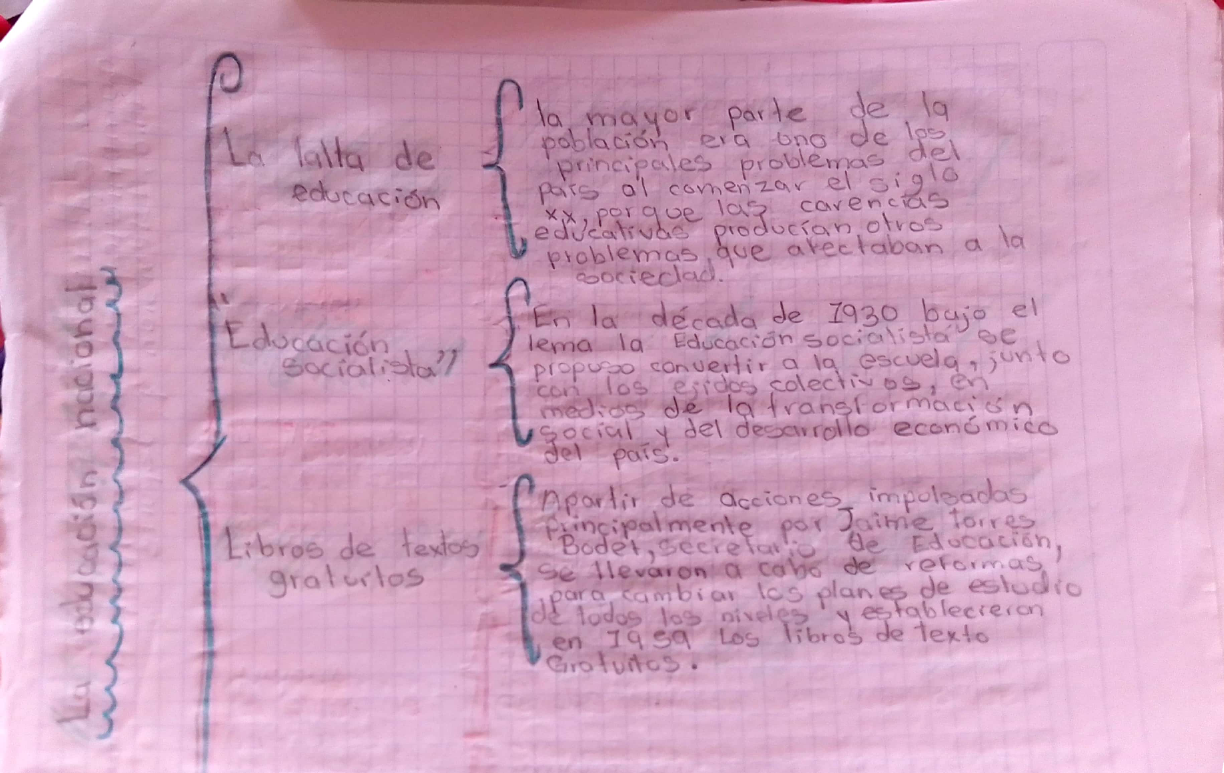 La educación nacional
La falta de
educación
la mayor parte de la
población era uno de los
principales problemas del
pais al comenzar el siglo
xx, porque las carencias
educativas producian otros
problemas que afectaban a la
sociedad.
"Educación
socialista"
En la década de 1930 bajo el
lema la Educación socialista se
propuso convertir a la escuela, junto
con los ejidos colectivos, en
medios de la transformación
social y del desarrollo económico
del país.
Libros de textos
gratuitos
Apartir de acciones impulsadas
Principalmente por Jaime Torres
Bodet, secretario de Educación,
se llevaron a cabo de reformas
para cambiar los planes de estudio
de todos los niveles y establecieron
en 1959 Los libros de texto
Gratuitos.